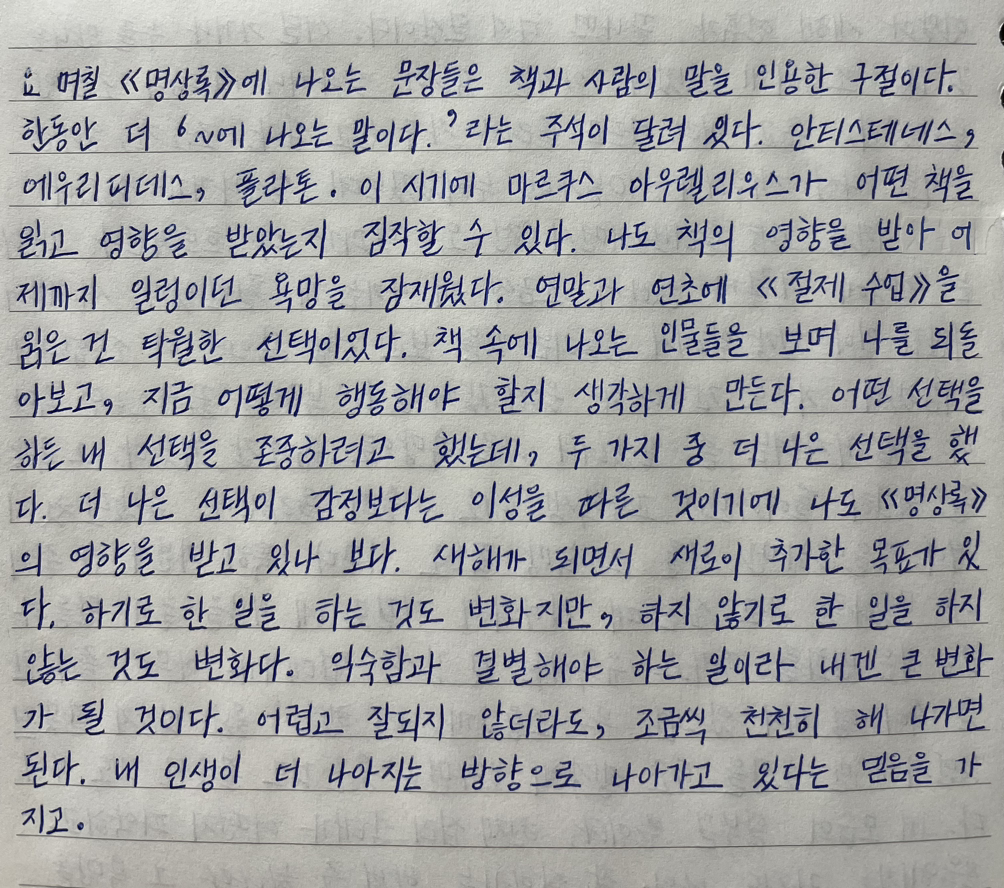 요 며칠 《명상록》에 나오는 문장들은 책과 사람의 말을 인용한 구절이다.
한동안 더 '~에 나오는 말이다.'라는 주석이 달려 있다. 안티스테네스,
에우리피데스, 플라톤. 이 시기에 마르쿠스 아우렐리우스가 어떤 책을
읽고 영향을 받았는지 짐작할 수 있다. 나도 책의 영향을 받아 어
제까지 일렁이던 욕망을 잠재웠다. 연말과 연초에 《절제 수업》을
읽은 건 탁월한 선택이었다. 책 속에 나오는 인물들을 보며 나를 되돌
아보고, 지금 어떻게 행동해야 할지 생각하게 만든다. 어떤 선택을
하든 내 선택을 존중하려고 했는데, 두 가지 중 더 나은 선택을 했
다. 더 나은 선택이 감정보다는 이성을 따른 것이기에 나도 《명상록》
의 영향을 받고 있나 보다. 새해가 되면서 새로이 추가한 목표가 있
다. 하기로 한 일을 하는 것도 변화지만, 하지 않기로 한 일을 하지
않는 것도 변화다. 익숙함과 결별해야 하는 일이라 내겐 큰 변화
가 될 것이다. 어렵고 잘되지 않더라도, 조금씩 천천히 해 나가면
된다. 내 인생이 더 나아지는 방향으로 나아가고 있다는 믿음을 가
지고.